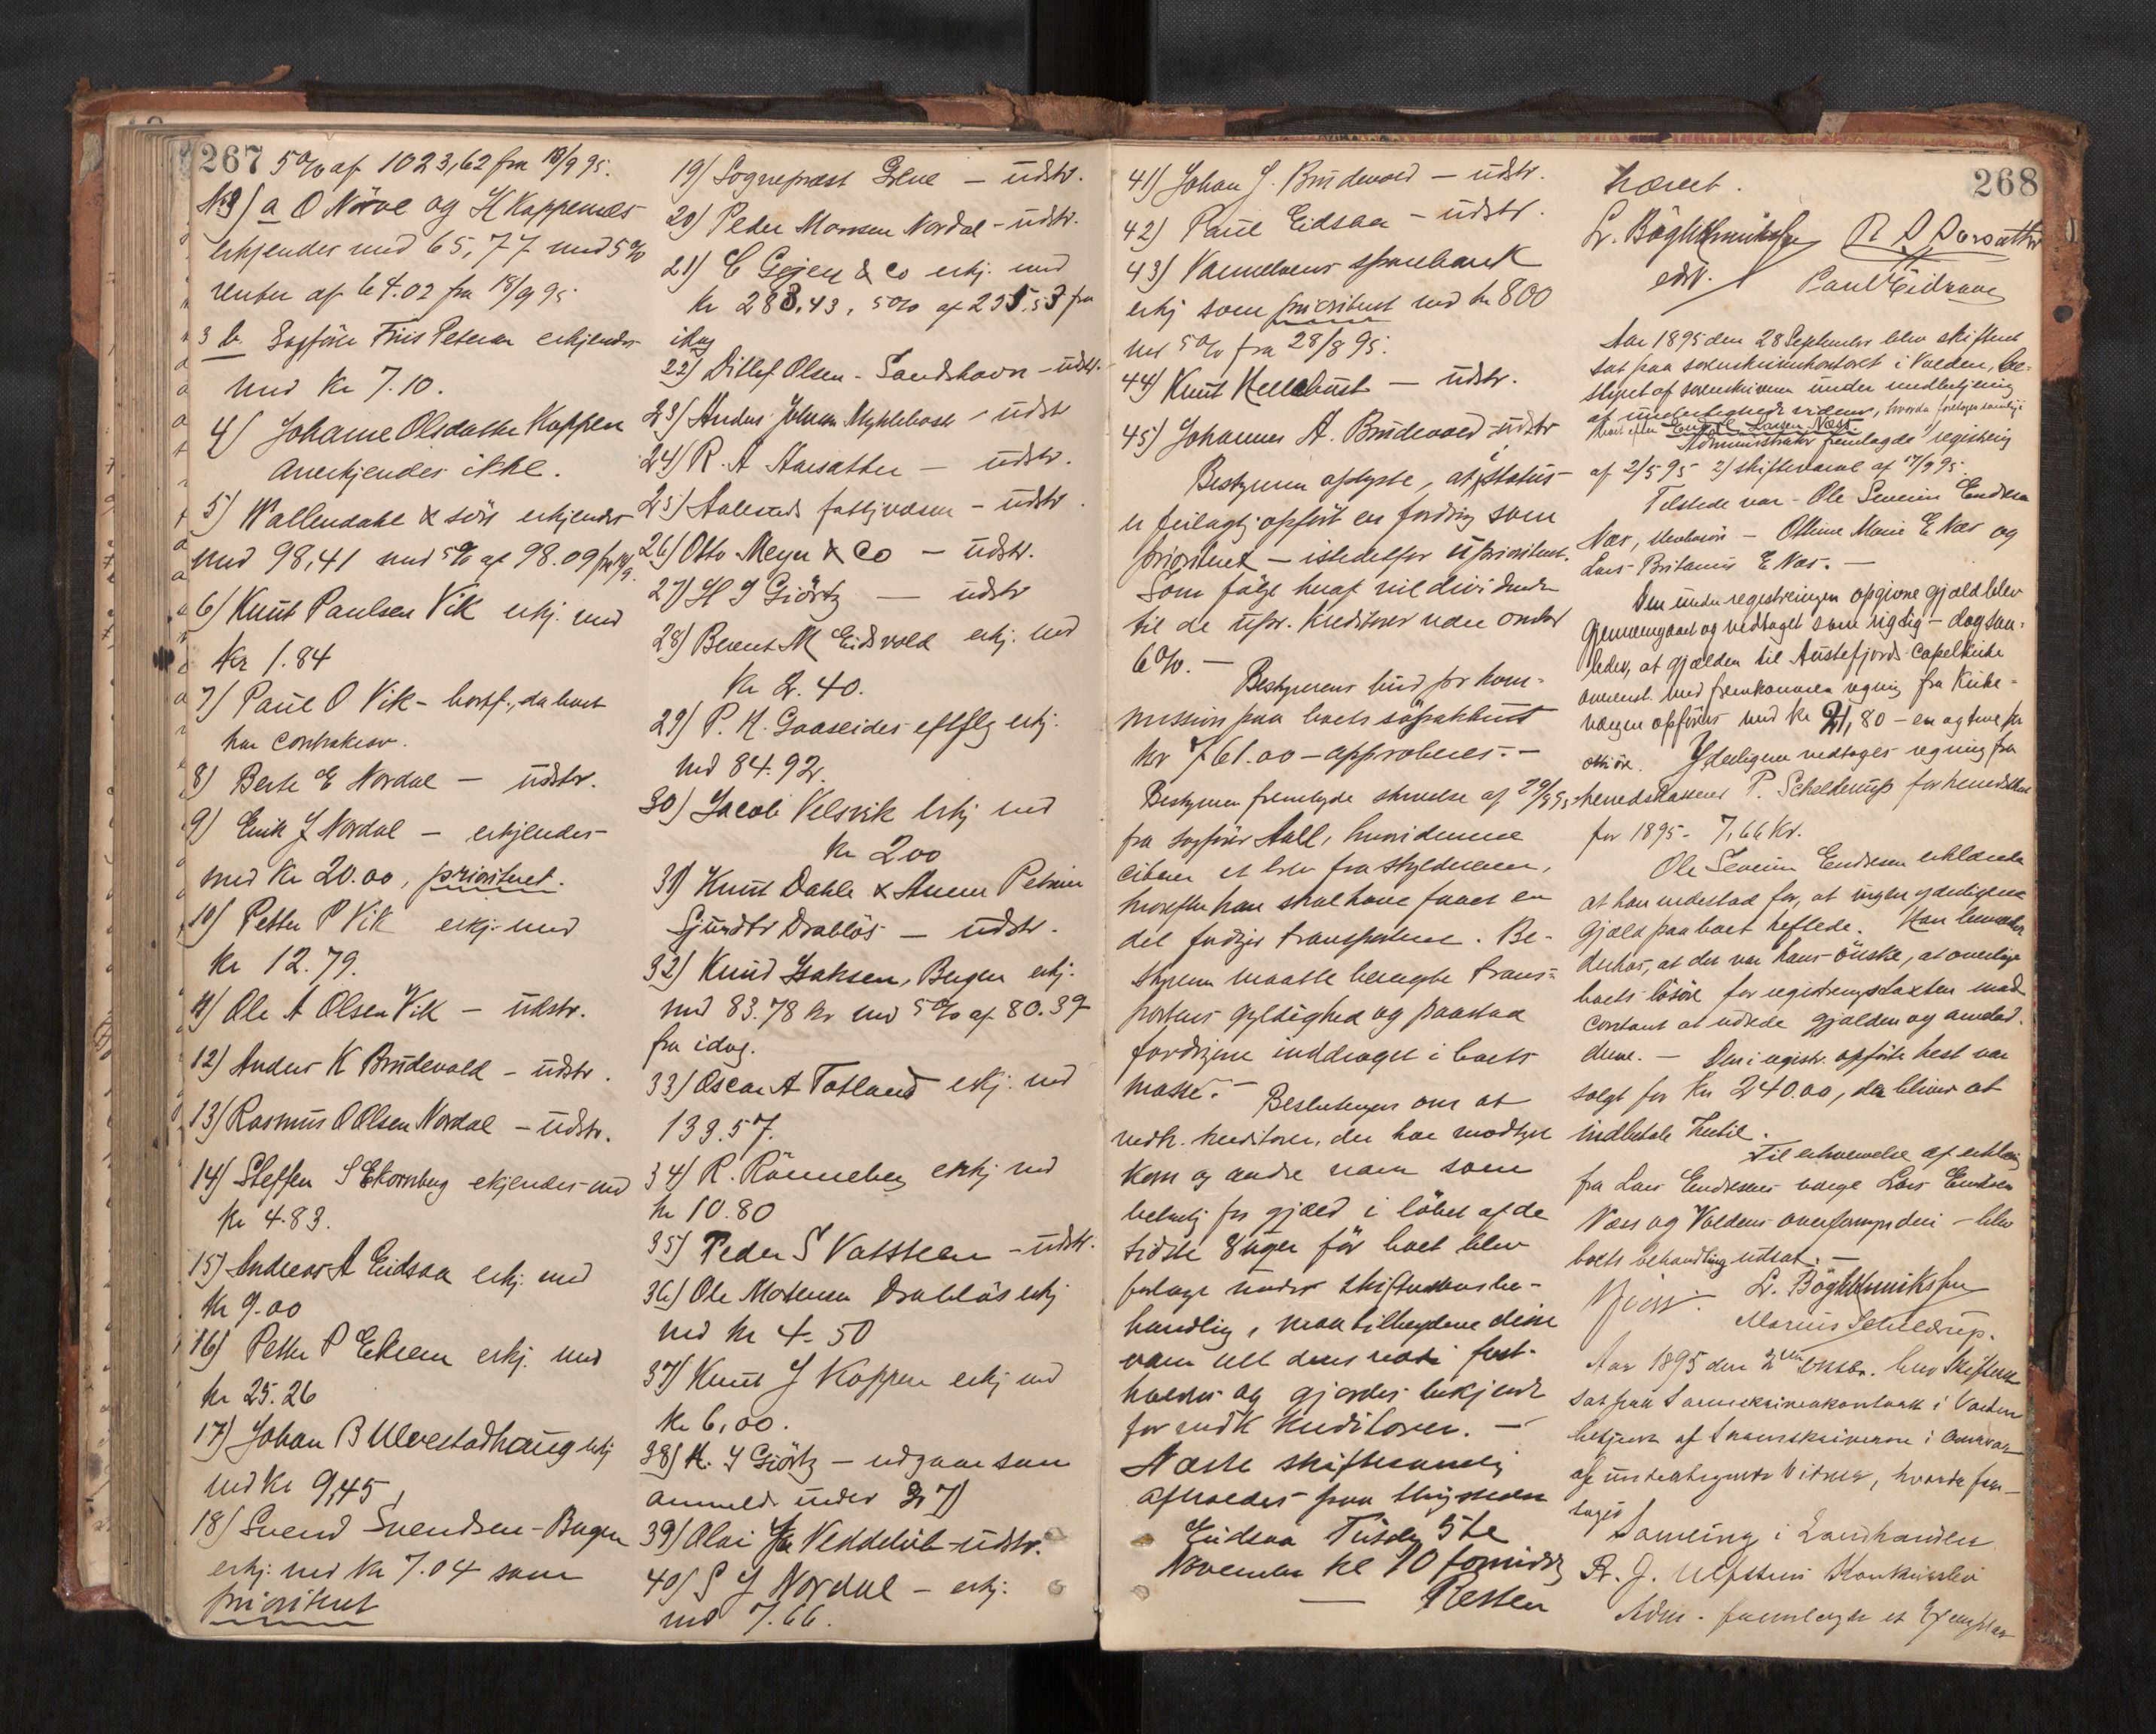 267
5% af 1023,62 fra 18/9 95.
No 3) a O Nörve og H Koppernæs
erkjendes med 65,77 med 5%
renter af 64.02 fra 18/9 95
3 b. Sagförer Friis Petersen erkjendes
med Kr 7.10.
4) Johanne Olsdatter Koppen
anerkjendes ikke.
5) Wallendahl & sön erkjendes
med 98,41 med 5% af 98.09 fra 18/9.
6) Knut Paulsen Vik erkj. med
Kr 1.84
7) Paul O Vik - bortf., da boet
har contrakrav.
8) Berte E Nordal — udstr.
9) Erik J Nordal — erkjendes
med Kr 20.00, prioritet.
10) Petter P Vik erkj. med
Kr 12.79.
11) Ole A Olsen Vik — udstr.
12) Anders K Brudevold - udstr.
13) Rasmus O Olsen Nordal - udstr.
14) Steffen S Ekornberg erkjendes med
Kr 4.83.
15) Andreas A Eidsaa erkj. med
Kr 9.00
16) Petter P Ekrem erkj. med
Kr 25.26
17) Johan B Ulvestadhaug erkj
med Kr 9,45
18) Svend Svendsen - Bugen
erkj. med Kr 7.04 som
prioritet
19) Sogneprest — udstr.
20) Peder Monsen Nordal - udstr.
21) C Gejer & Co erkj. med
Kr 288.43, 5% af 255.53 fra
idag
22) Ditlef Olsen - Sandshavn - udstr.
23) Anders Johnsen Myklebost - udstr
24) R. A Aarsæther — udstr.
25) Aalesunds fattigvæsen - udstr.
26) Otto Meyer & Co — udstr.
27) H I Giörtz — udstr
28) Berent M Eidsvold erkj. med
Kr 2.40.
29) P. H. Gaaseides eftflg erkj.
med 84.92.
30) Jacob Velsvik erkj med
Kr 200
31) Knut Dahle & Anne Petrine
Sjurdtr Drablös — udstr.
32) Knud Isaksen, Bugen erkj.
med 83.78 kr med 5% af 80.39
fra idag.
33) Oscar A Totland erkj. med
133.57.
34) R. Rönneberg erkj med
Kr 10.80
35) Peder S Vatsteen - udstr.
36) Ole Mortensen Drablös erkj
med Kr 4.50
37) Knut J Koppen erkj med
Kr 6,00.
38) H. I Giörtz — udgaar som
anmeldt under No 27)
39) Olai Veddelub - udstr.
40) S J Nordal — erkj.
med 7.66.
41) Johan J. Brudevold — udstr.
42) Paul Eidsaa — udstr.
43) Vannelvens sparebank
erkj som prioritert med kr 800
med 5% fra 28/8 95.
44) Knut Hellebust — udstr.
45) Johannes A. Brudevold - udstr
Bestyreren oplyste, at i status
er feilagtig opført en fordring som
prioritert — istedetfor uprioritert.
Som følge heraf vil dividenden
til de upr. kreditorer under
6%. —
Bestyrerens bud for kom-
mission paa boets
kr 761.00 - approberes. —
Bestyreren fremlagde skrivelse af 20/9 95
fra sagfører Aall, hvori denne
citerer et brev fra skyldneren,
hvorefter han skal have faaet en
del fordringer transporteret. Be-
styreren maatte benegte trans-
portens gyldighed og paastaa
fordringerne inddraget i boets
masse. —
Beslutningen om at
vedk. kreditorer, der har modtaget
korn og andre varer som
betaling for gjæld i löbet af de
sidste 8 uger før boet blev
taget under skifterettens be-
handling, maa tilbagelevere disse
varer
holdes og gjøres bekjendt
for vedk kreditorer. —
Næste skiftesamling
afholdes paa thingstedet
Eidsaa Tirsdag 5te
November kl 10 formiddag
Retten
268
hævet.
L. Bögh Henrikssen
edsv.
R A Aarsæther
Paul Eidsaa
Aar 1895 den 28 September blev skifteret
sat paa sorenskriverkontoret i Volden, be-
styret af sorenskriveren under medbetjening
af undertegnede vidner, hvorda foretoges samling
i boet efter Endre Larsen Næss
Administrator fremlagde registrering
af 2/5 95 2) skiftevarsel af 17/9 95.
Tilstede var - Ole Severin Endresen
Næs, - Oline Marie E Næs og
Lars Britanus E Næs. —
Den under registreringen opgivne gjæld blev
gjennemgaaet og vedtaget som rigtig — dog saa-
ledes, at gjælden til Austefjords Capelkirke
overenst. med fremkommen regning fra Kirke-
værgen opføres med kr 21,80 — en og tyve kr
otti øre. Yderligere vedtages regning fra
herredskasserer P. Schelderup for herredskat
for 1895 - 7,66 Kr.
Ole Severin Endresen erklærede
at han indestod for, at ingen yderligere
gjæld paa boet heftede. Han bemærkede
derhos, at det var hans önske, at overtage
boets lösöre for registreringstaxten mod
contant at udrede gjælden og
dene. — Den i registr. opførte hest var
solgt for Kr 240.00, der bliver at
indbetale hertil.
Til erhvervelse af erklæring
fra Lars Endresens værge Lars Endresen
Næs og Voldens overformynderi — blev
boets behandling udsat. —
L. Bögh Henrikssen
Marius Schelderup.
Aar 1895 den 2den Oktbr. blev Skifteret
sat paa Sorenskriverkontoret i Volden
betjent af Sorenskriveren i Overvær
af undertegnede Vidner, hvorda fore-
toges
Samling i Landhandler
R. J. Ulfstens Konkursbo
Adm. fremlagde et Exemplar